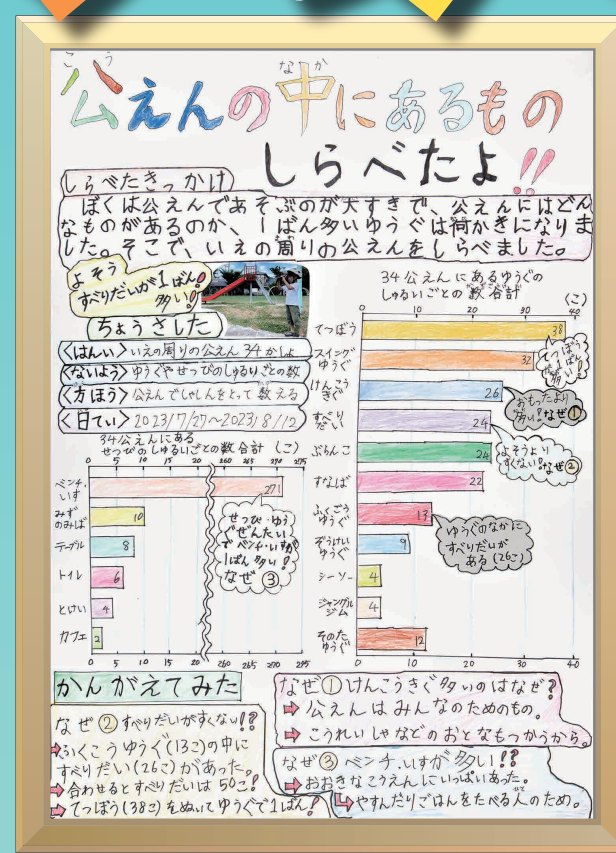 公えんの中にあるもの
こう
なか
しらべたよ!!
しらべたきっかけ
ぼくは公えんであそぶのが大すきで、公えんにはどん
なものがあるのか、1ばん多いゆうぐは何かきになりま
した。そこで、いえの周りの公えんをしらべました。
よそう
すべりだいが1ばん
多い!
ちょうさした
<はんい>いえの周りの公えん34かしょ
<ないよう>ゆうぐやせつびのしゅるいごとの数
<方ほう>公えんでしゃしんをとって数える
<日てい>2023/7/27~2023/8/12
34公えんにある
せつびのしゅるいごとの数合計 (こ)
0 5 10 15 20 260 265 270 275
ベンチ・いす 271
みずのみば 10
テーブル 8
トイレ 6
とけい 4
カフェ 2
0 5 10 15 20 260 265 270 275
せつび・ゆう
ぐぜんたい
でベンチ・いすが
1ばん多い!
なぜ③
34公えんにあるゆうぐの
しゅるいごとの数合計 (こ)
0 10 20 30 40
てつぼう 38
スイングゆうぐ 32
けんこうきぐ 26
すべりだい 24
ぶらんこ 24
すなば 22
ふくごうゆうぐ 13
ぞうけいゆうぐ 9
シーソー 4
ジャングルジム 4
そのたゆうぐ 12
0 10 20 30 40
てつぼう
が1ばん
多い!
おもったより
多い!なぜ①
よそうより
すくない!なぜ②
ゆうぐのなかに
すべりだいが
ある(26こ)
かんがえてみた
なぜ②すべりだいがすくない!?
➡ふくごうゆうぐ(13こ)の中に
すべりだい(26こ)があった。
➡合わせるとすべりだいは50こ!
➡てつぼう(38こ)をぬいてゆうぐで1ばん!
なぜ①けんこうきぐ多いのはなぜ?
➡公えんはみんなのためのもの。
➡こうれいしゃなどのおとなもつかうから。
なぜ③ベンチ、いすが多い!?
➡おおきなこうえんにいっぱいあった。
➡やすんだりごはんをたべる人のため。